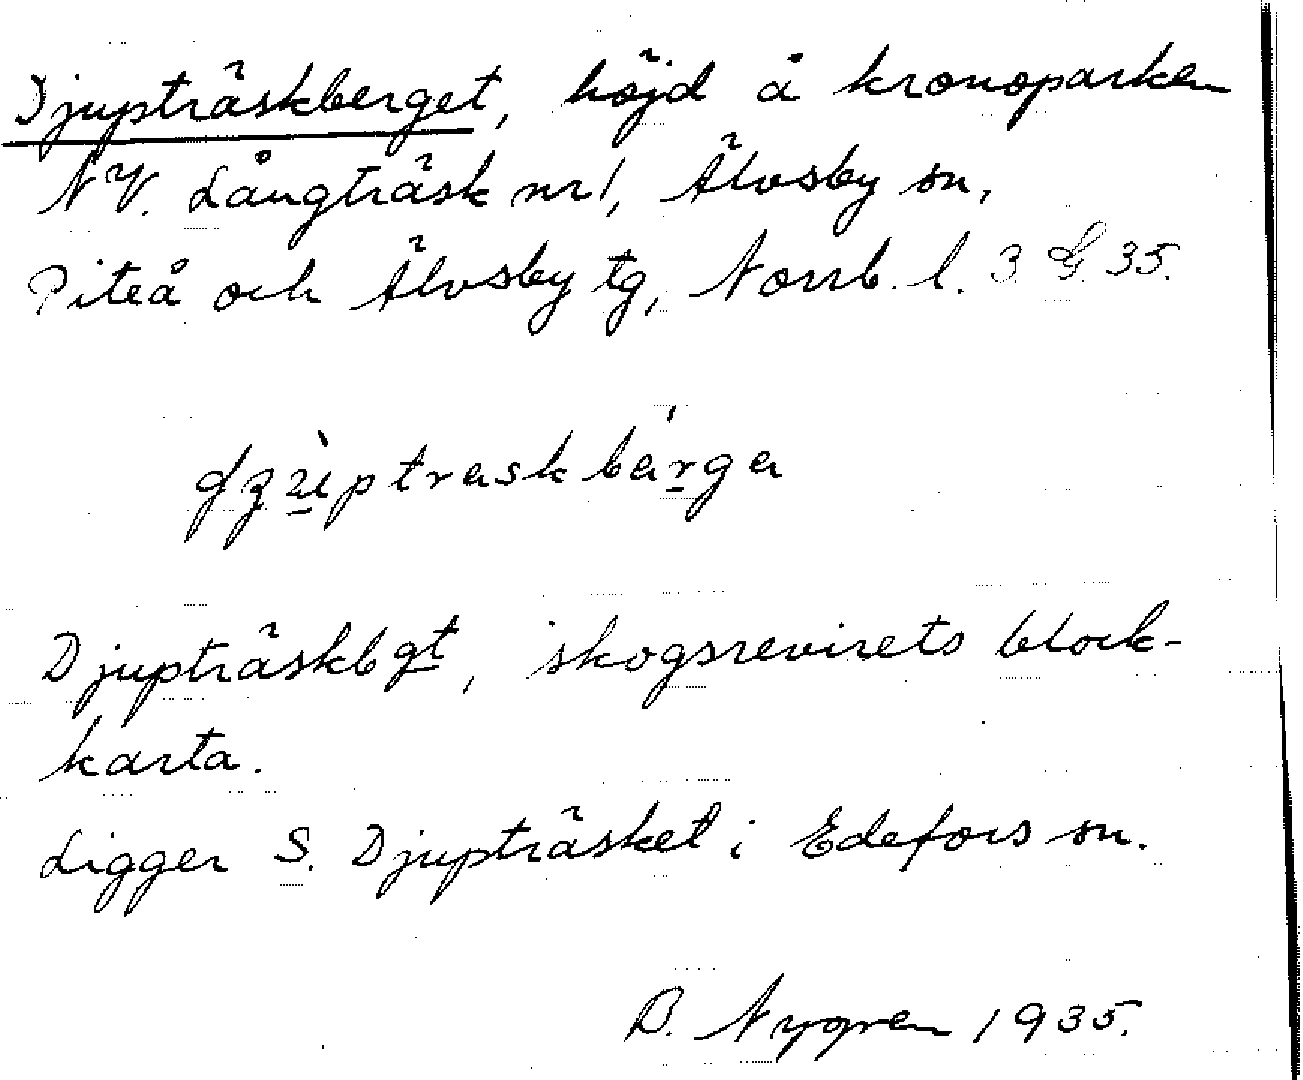 Djupträskberget, höjd å kronoparken
NV. Långträsk nr 1, Älvsby sn,
Piteå och Älvsby tg, Norrb. l. 3 G 35.
djùptraskbárga
Djupträskbgt, skogsrevirets block-
karta.
Ligger S. Djupträsket i Edefors sn.
B. Nygren 1935.